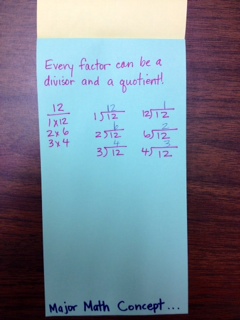 Every factor can be a
divisor and a quotient!
12
1x12
2x6
3x4
12
1)12
6
2)12
4
3)12
1
12)12
2
6)12
3
4)12
Major Math Concept...